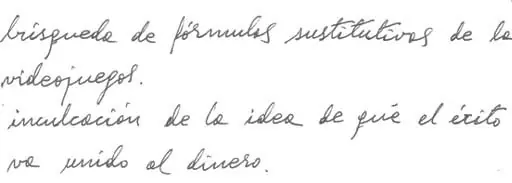 búsqueda de fórmulas sustitutivas de lo
videojuegos.
inculcación de la idea de que el éxito
va unido al dinero.